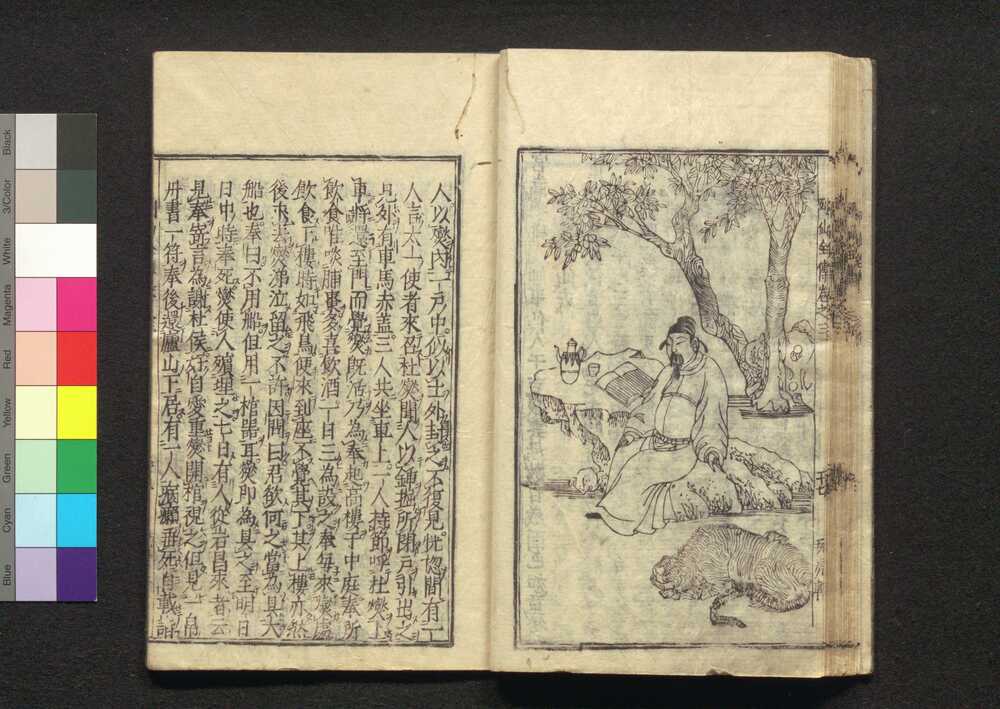 人以燮內一戶中。似以土外封之不復見。恍惚間有二
人言太一使者來召杜燮聞人以鍾掘所閉戶引出之
見外有車馬赤蓋三人共坐車上一人持節呼杜燮上
車將還至門而覺燮既活乃為奉起高樓于中庭奉所
飲食惟啖脯棗多喜飲酒一日三為設之奉每來燮處
飲食下樓時如飛鳥便來到座不覺其下其上樓亦然
後求去燮涕泣留之不許因問曰君欲何之當為具大
船也奉曰不用船但用一棺器耳燮即為具之至明日
日中時奉死燮使人殯埋之七日有人從容昌來者云
見奉寄言為謝杜侯好自愛重燮開棺視之但見一帛
丹書一符奉後還廬山下居有一人病癩垂死自載詣
Black
3/Color
White
Magenta
Red
Yellow
Green
Cyan
Blue